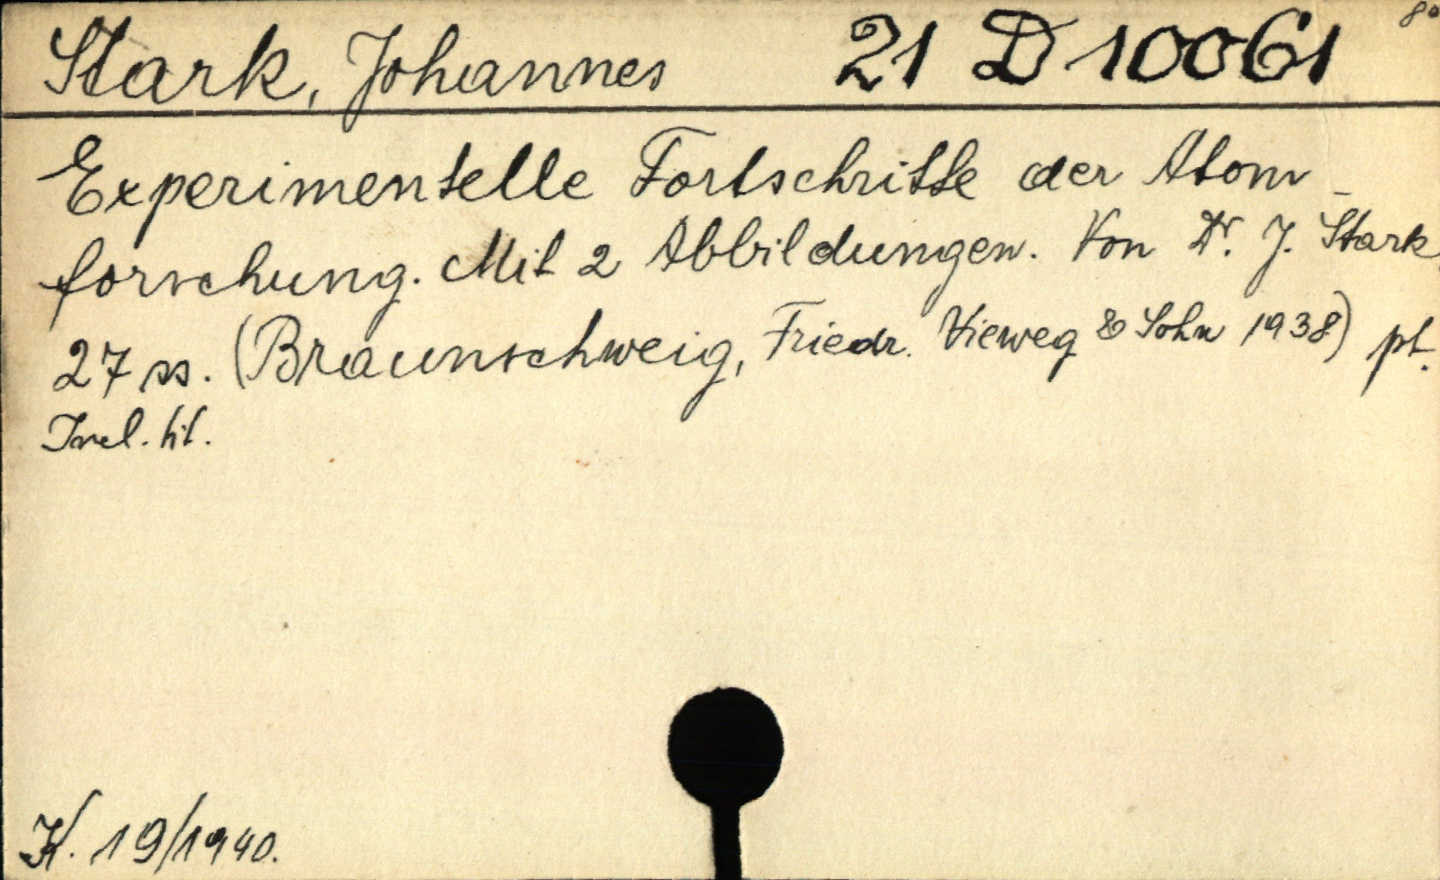 Stark, Johannes 21 D 10061 8°
Experimentelle Fortschritte der Atom-
forschung. Mit 2 Abbildungen. Von Dr. J. Stark.
27 ss. (Braunschweig, Friedr. Vieweg & Sohn 1938) pt.
Incl. tit.
K. 19/1940.